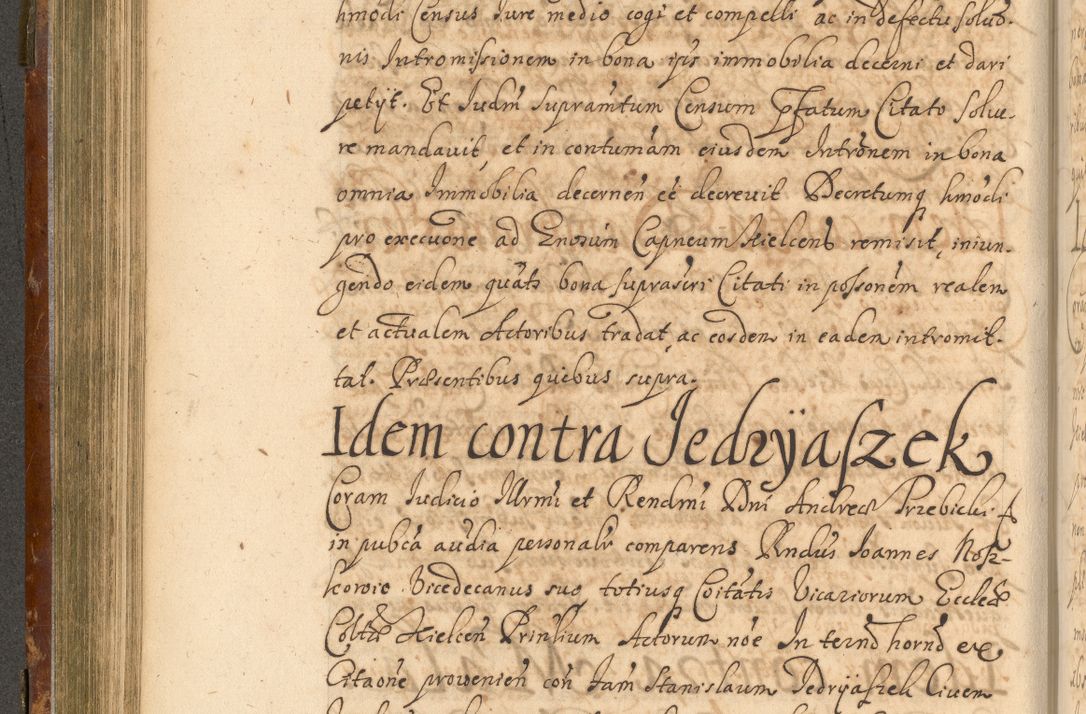 hmodi Census Jure medio cogi et compelli ac in defectu soluõ-
nis Intromissionem in bona ipis immobilia decerni et dari
petijt. Et Judm supramtum Censum Pfatum Citato solue-
re mandavit, et in contumãm eiusdem Intronem in bona
omnia Immobilia decernen et decrevit Decretumq hmodi
pro execuone ad Enorum Capneum Kielcens remisit, iniun-
gendo eidem quats bona suprascri Citati in possonem realem
et actualem Actoribus tradat, ac eosdem in eadem intromit-
tat. Præsentibus quibus supra.
Idem contra Jedryaszek
Coram Judicio Illrmi et Rendmi Dni Andreæ Trzebicki &
in pubca audia personalr comparens Rndus Joannes Nosz-
kowic Vicedecanus suo totiusq Coitatis Vicariorum Eccles
Coltæ Kielcen Prinlium Actorum nõe In termo horno ex
Citaone provenien con fam Stanislaum Jedryaszek Civem